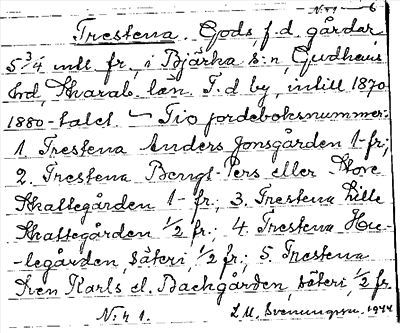 N:r 1 - 6
Trestena. Gods, f.d. gårdar,
5 3/4 mtl fr, i Bjärka s:n, Gudhems
hd, Skarab. län. F.d by, intill 1870
1880-talet. — Tio jordeboksnummer:
1. Trestena Anders Jonsgården 1-fr;
2. Trestena Bengt-Pers eller Store
Skattegården 1- fr; 3. Trestena Lille
Skattegården 1/2 fr; 4. Trestena Hu-
-legården, säteri, 1/2 fr; 5. Trestena
Sven Karls el. Backgården, säteri, 1/2 fr.
N:r 1. L.M. Svenungsson. 1944